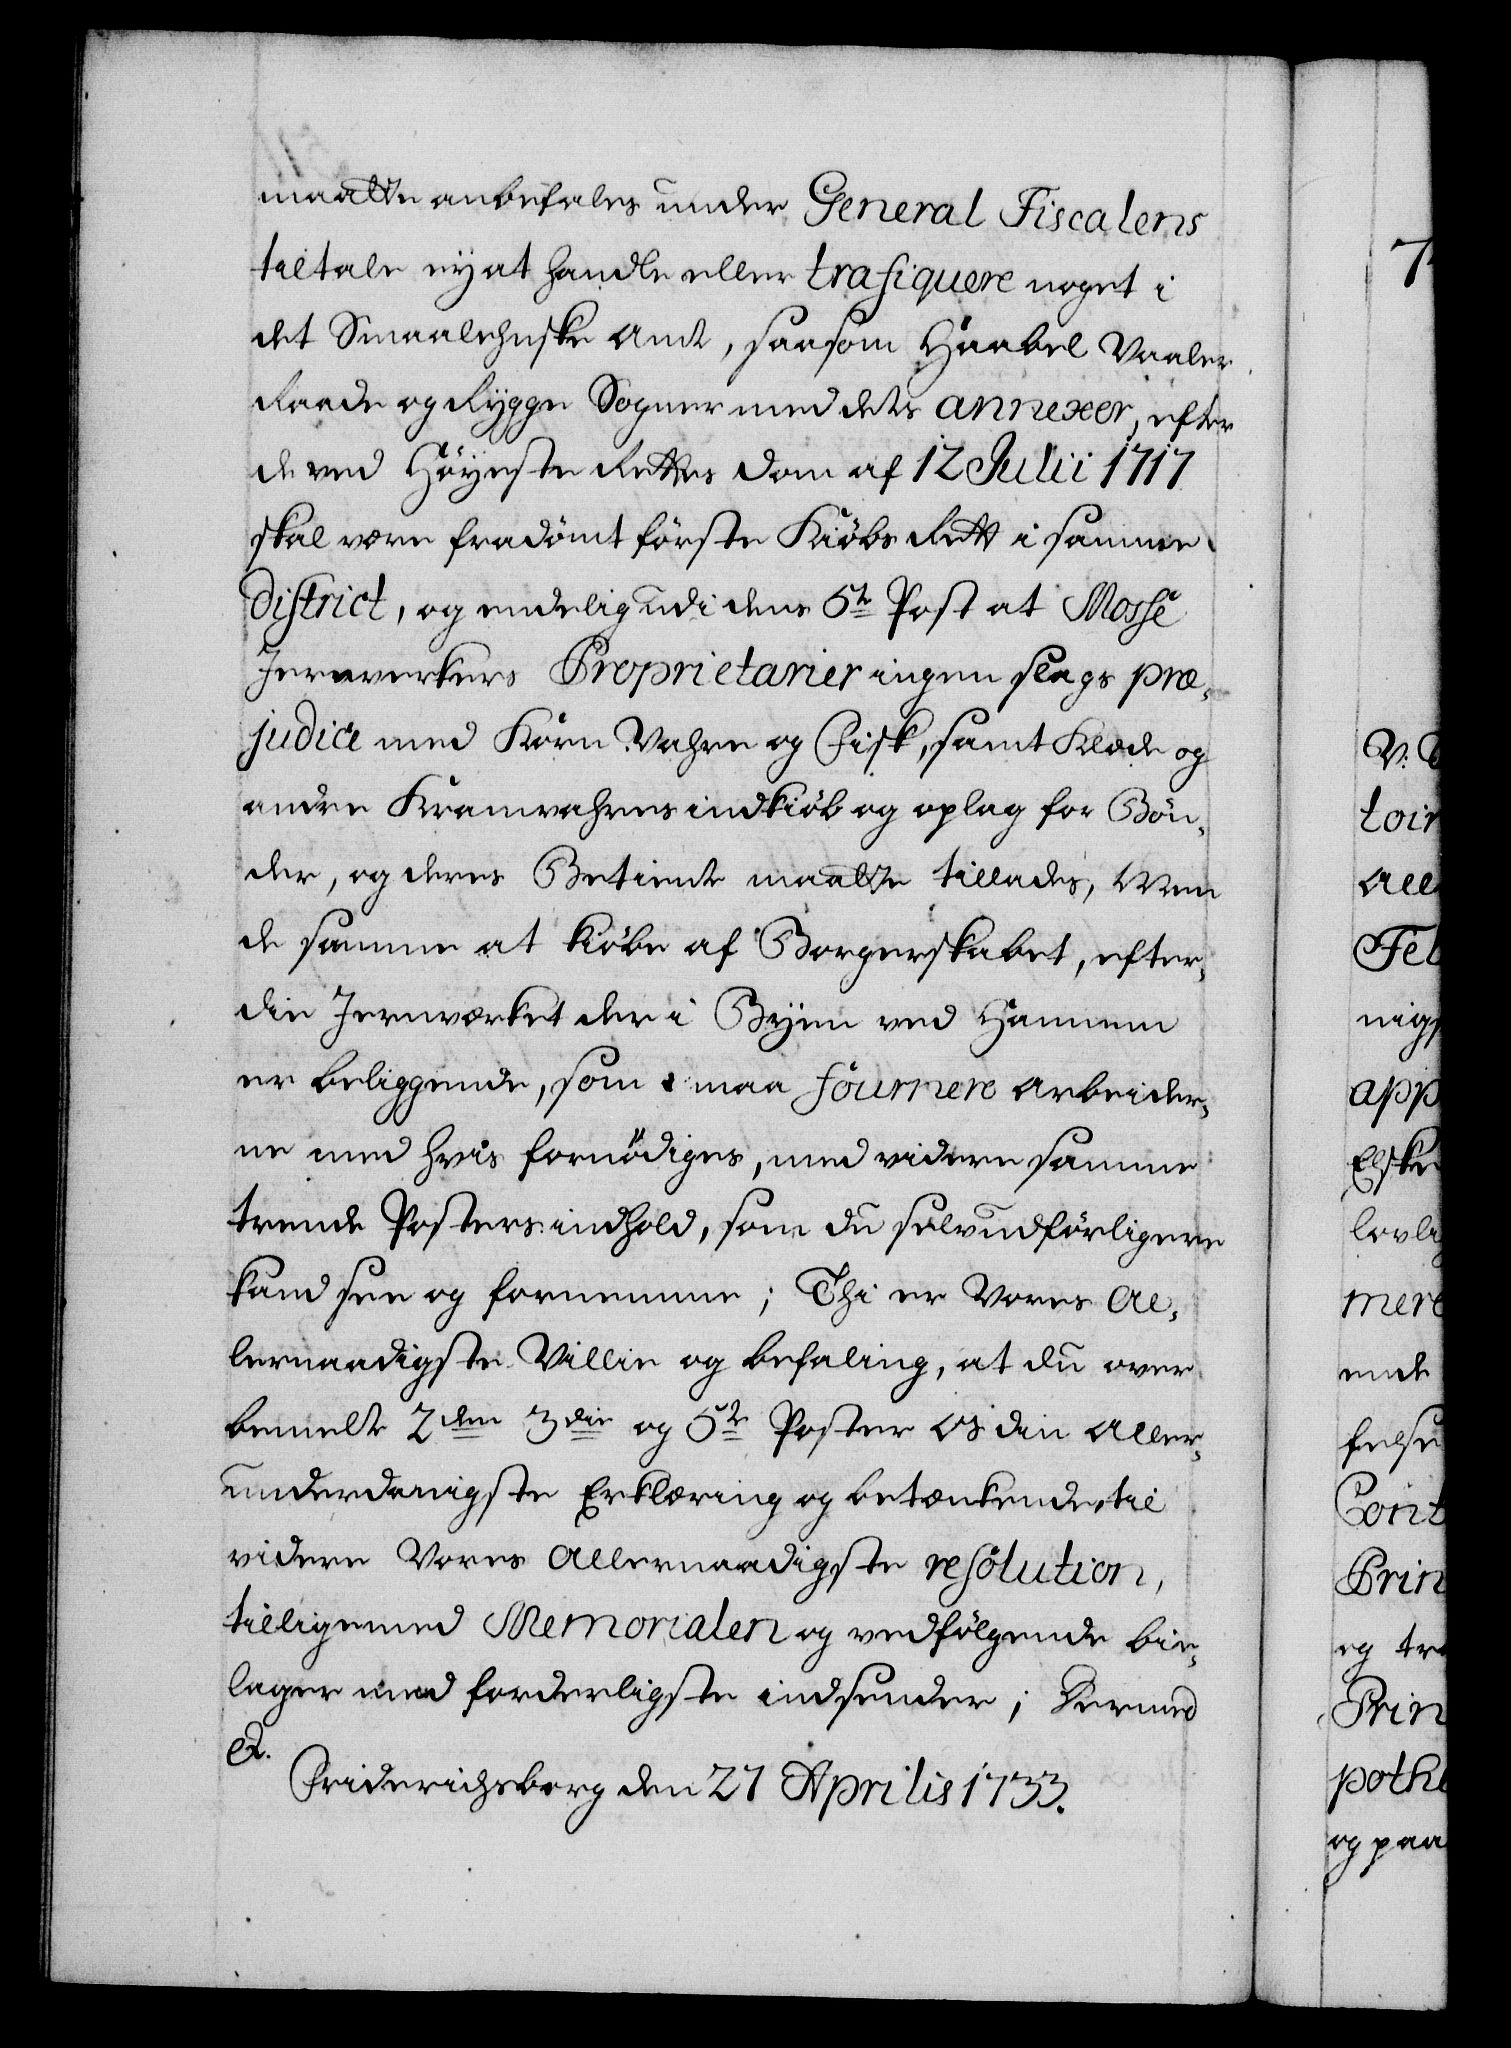 maatte anbefales under General Fiscalens
tiltale ey at handle eller trafiquere noget i
det Smaalehnske Amt, saasom Haabel Vaaler
Raade og Rygge Sogner med dets annexer, efter
de ved Höyeste Rettes dom af 12 Julii 1717
skal være fradömt förste Kiöbs Rett i samme
District, og endelig udi dens 5te Post at Mosse
Jernverkers Proprietarier ingen slags præ,
judice med Korn Vahre og Fisk, samt Klæde og
andre Kramvahres indkiöb og oplag for Bön,
der, og deres Betiente maatte tillades, Men
de samme at kiöbe af Borgerskabet, efter,
die Jernværket der i Byen ved Hannem
er beliggende, som maa fournere Arbeider,
ne med hvis fornödiges, med videre samme
trende Posters indhold, som du selv udförligere
kand see og fornemme; Thi er Vores Al,
lernaadigste Villie og befaling, at du over
bemelte 2den 3die og 5te Poster os din Aller,
underdanigste Erklæring og betænkende, til
videre Vores Allernaadigste resolution,
tilligemed Memorialen og vedfölgende bie,
lager med forderligste indsender; Dermed
&.
Friderichsborg den 27 Aprilis 1733.
V:
toir
All
Fel
nigs
app
Elske
lovli
mere
ende
felse
Cont
Prin
og tr
Prin
pothe
og paa